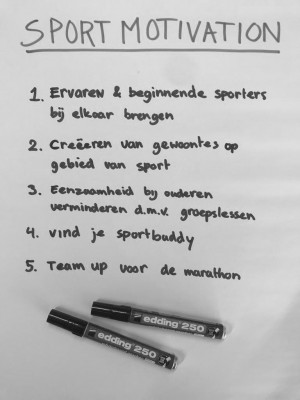 SPORT MOTIVATION
1. Ervaren & beginnende sporters
bij elkaar brengen
2. Creëeren van gewoontes op
gebied van sport
3. Eenzaamheid by ouderen
verminderen d.m.v. groepslessen
4. vind je sportbuddy
5. Team up voor de marathon
edding 250
edding 250